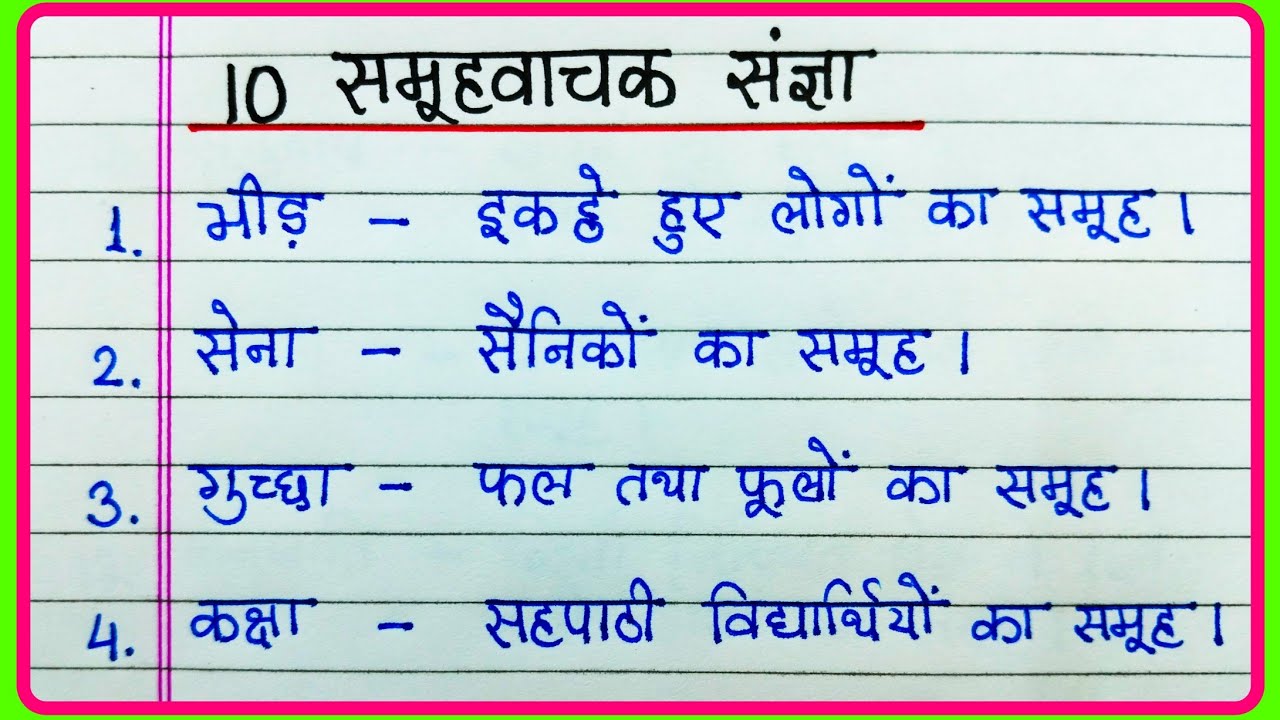 10 समूहवाचक संज्ञा
1. भीड़ - इकट्ठे हुए लोगों का समूह।
2. सेना - सैनिकों का समूह।
3. गुच्छा - फल तथा फूलों का समूह।
4. कक्षा - सहपाठी विद्यार्थियों का समूह।